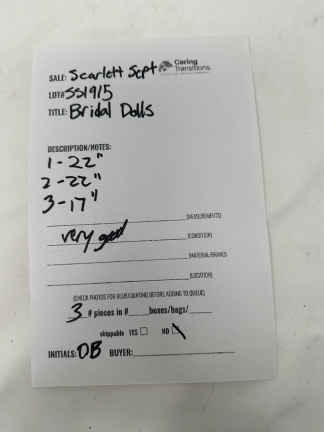 SALE: Scarlett Sept Caring Transitions
LOT# SS1915
TITLE: Bridal Dolls
DESCRIPTION/NOTES:
1-22"
2-22"
3-17"
(MEASUREMENTS)
very good (CONDITION)
(MATERIAL/BRAND)
(LOCATION)
(CHECK PHOTOS FOR BEFORE ADDING TO QUEUE)
3 # pieces in # boxes/bags/
shippable YES NO
INITIALS: DB BUYER: